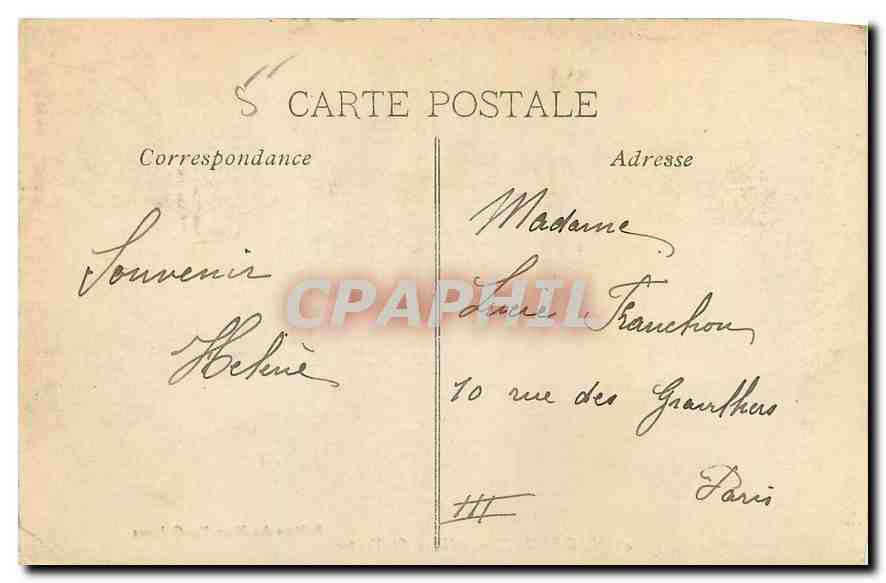 5"
CARTE POSTALE
Correspondance
Adresse
Souvenir
Helène
Madame
Franchon
10 rue des
Paris
III
CPAPHIL